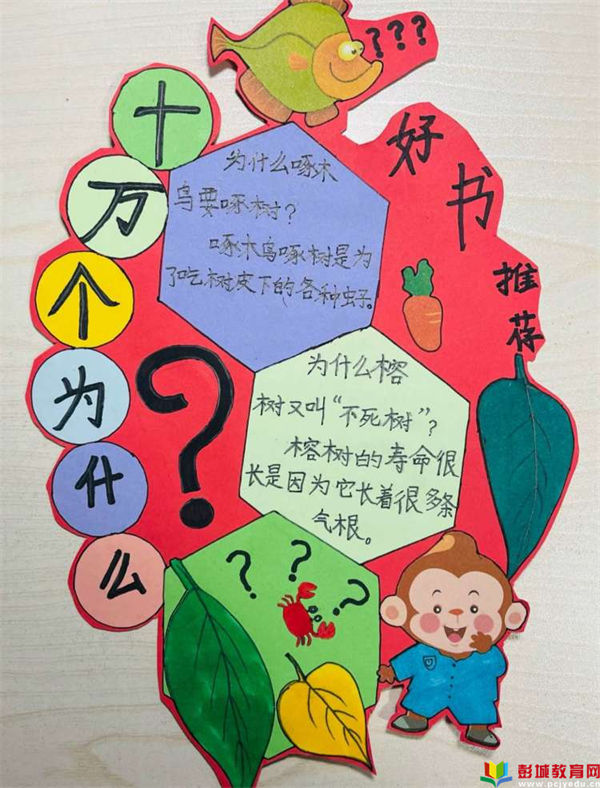 十
万
个
为
什
么
???
好
书
推
荐
为什么啄木
鸟要啄树?
啄木鸟啄树是为
了吃树皮下的各种虫子。
?
为什么榕
树又叫“不死树”?
榕树的寿命很
长是因为它长着很多条
气根。
? ? ?
彭城教育网
www.pcjyedu.cn